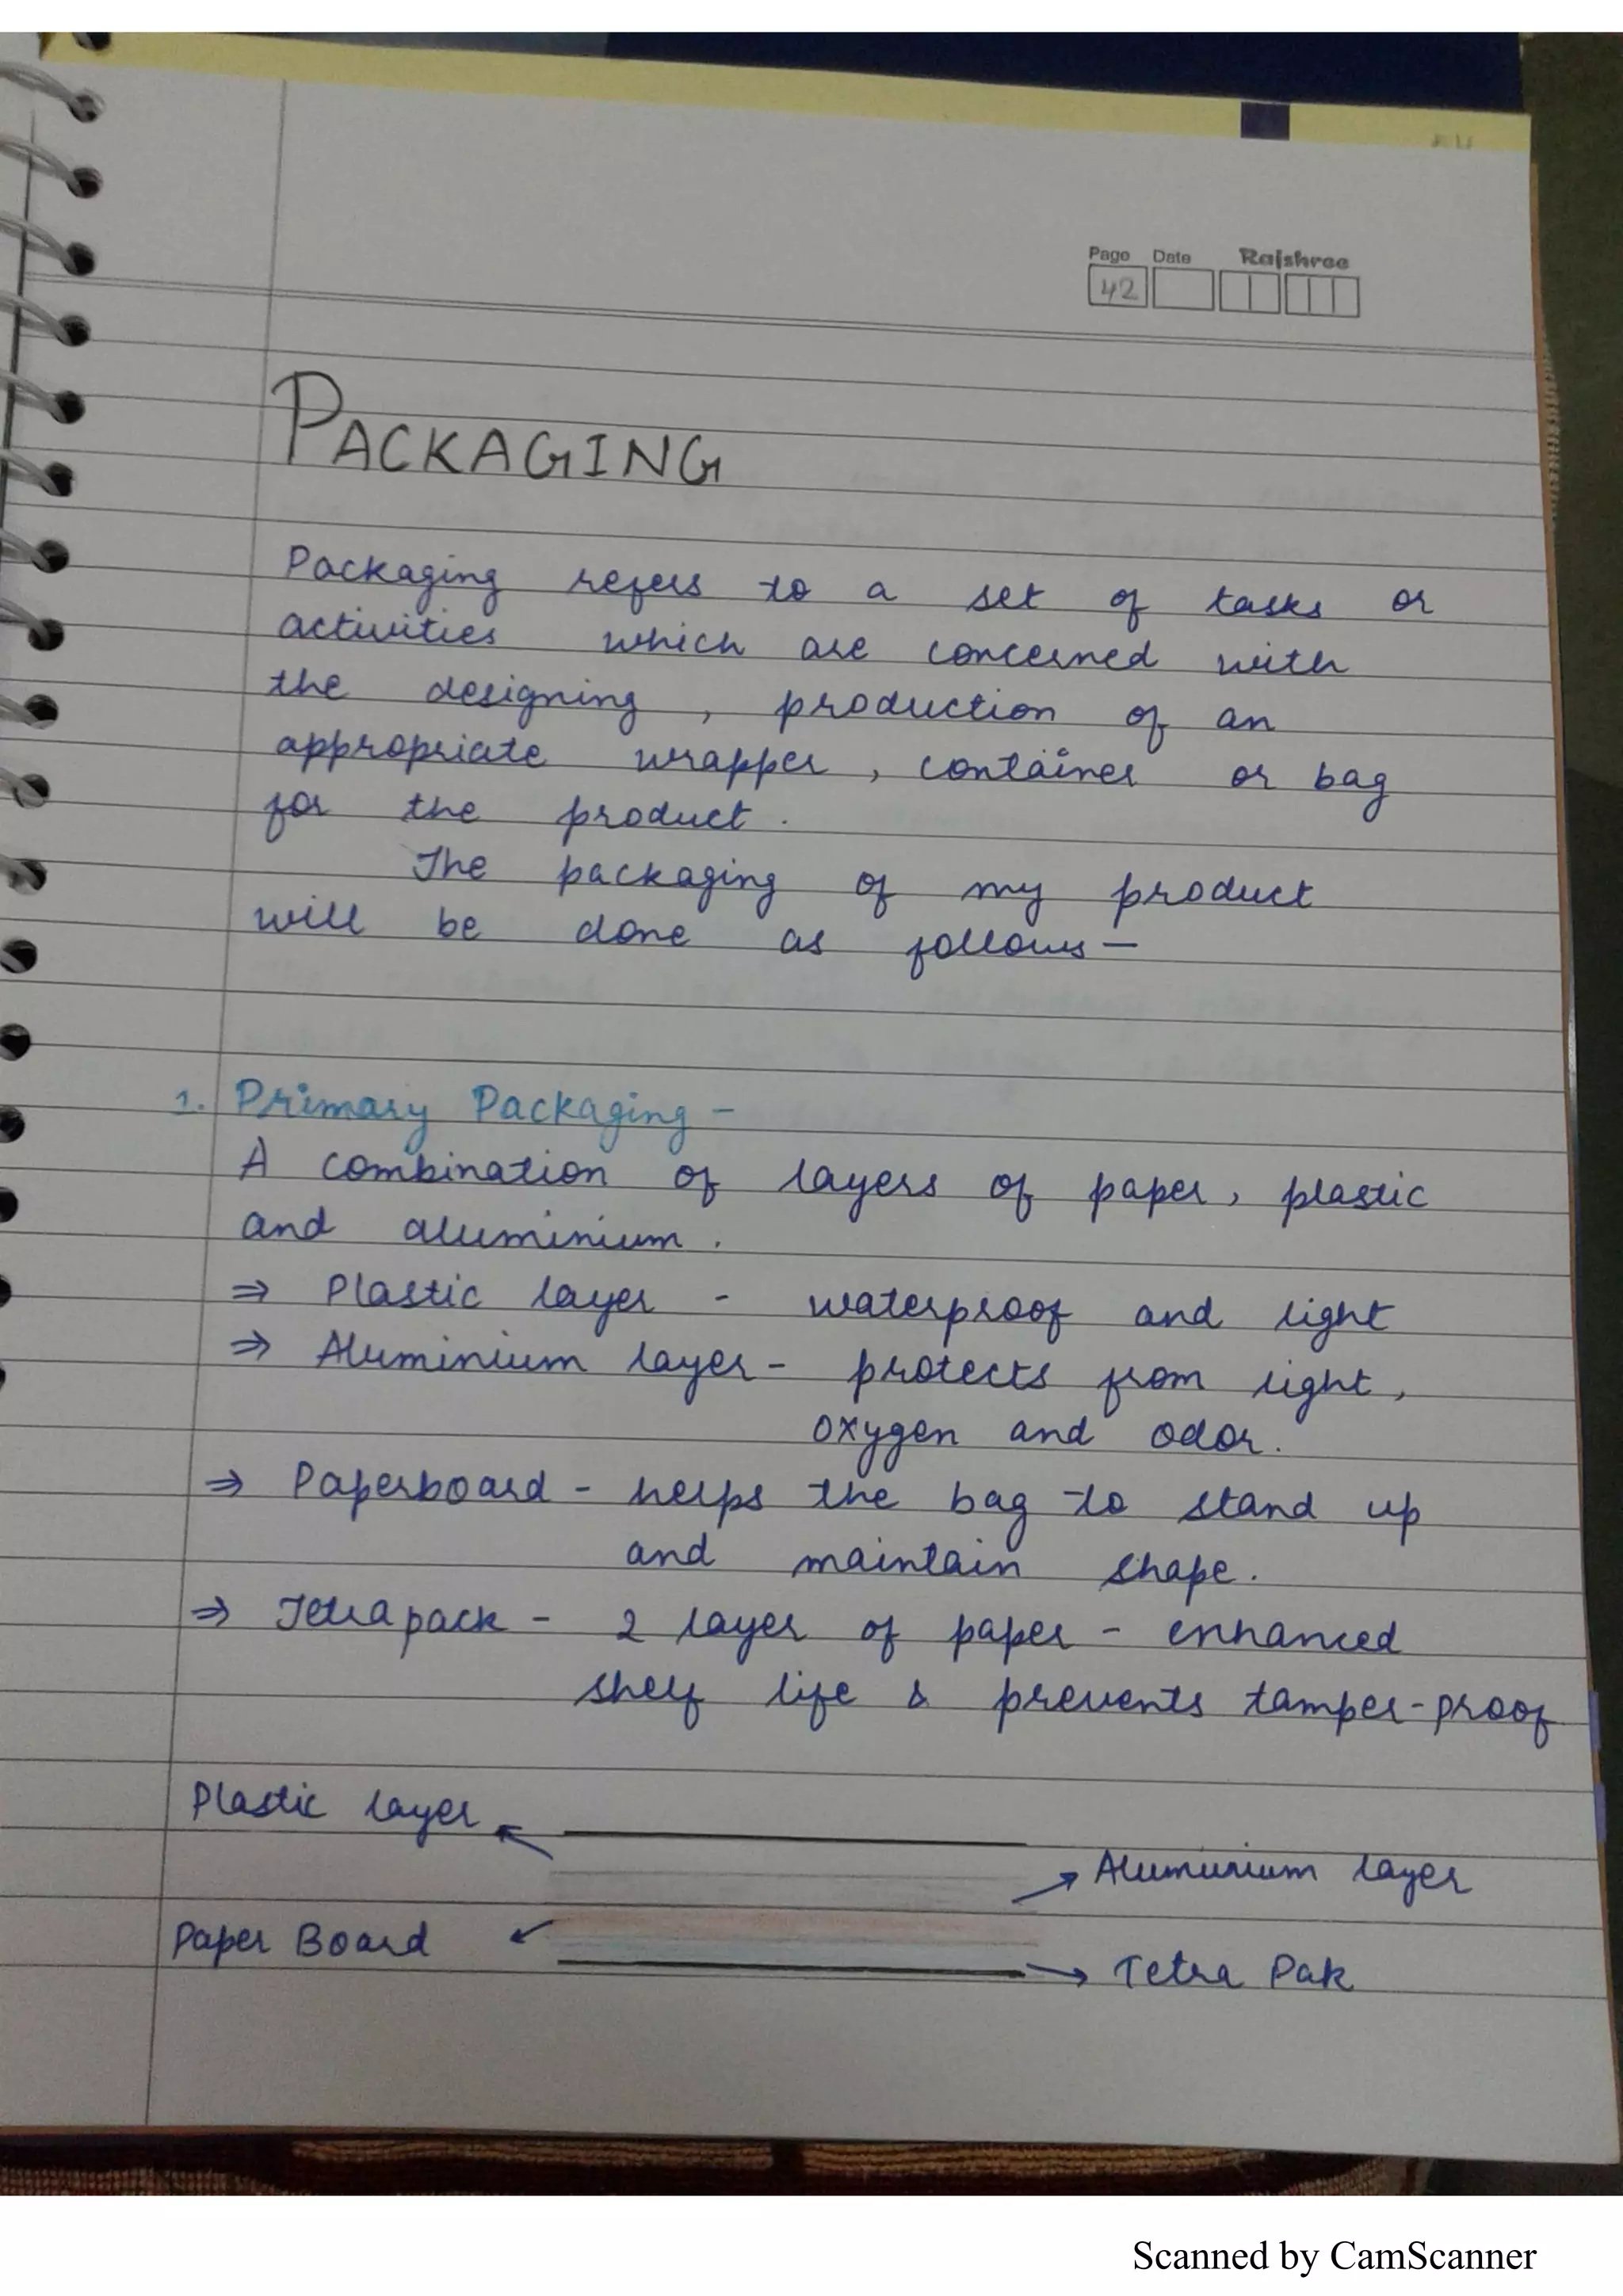 Page Date Rajshree
42
PACKAGING
Packaging refers to a set of tasks or
activities which are concerned with
the designing, production of an
appropriate wrapper, container or bag
for the product.
The packaging of my product
will be done as follows —
1. Primary Packaging -
A combination of layers of paper, plastic
and aluminium.
⇒ Plastic layer - waterproof and light
⇒ Aluminium layer - protects from light,
oxygen and odor.
⇒ Paperboard - helps the bag to stand up
and maintain shape.
⇒ Tetrapack - 2 layer of paper - enhanced
shelf life & prevents tamper-proof
Plastic layer
Aluminium layer
Paper Board
Tetra Pak
Scanned by CamScanner